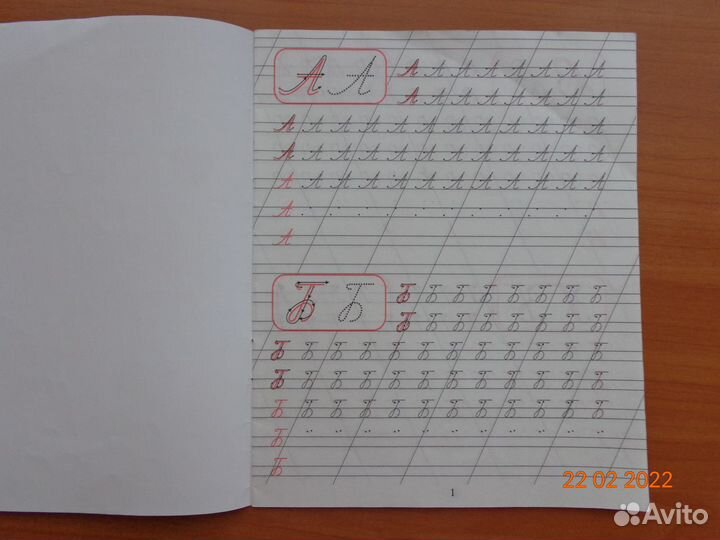 А А
А А А А А А А А
А А А А А А А А
А А А А А А А А А А А А
А А А А А А А А А А А А
А А А А А А А А А А А А
А
А
Б Б
Б Б Б Б Б Б Б Б
Б Б Б Б Б Б Б Б
Б Б Б Б Б Б Б Б Б Б Б Б
Б Б Б Б Б Б Б Б Б Б Б Б
Б Б Б Б Б Б Б Б Б Б Б Б
Б
Б
1
22 02 2022
Avito